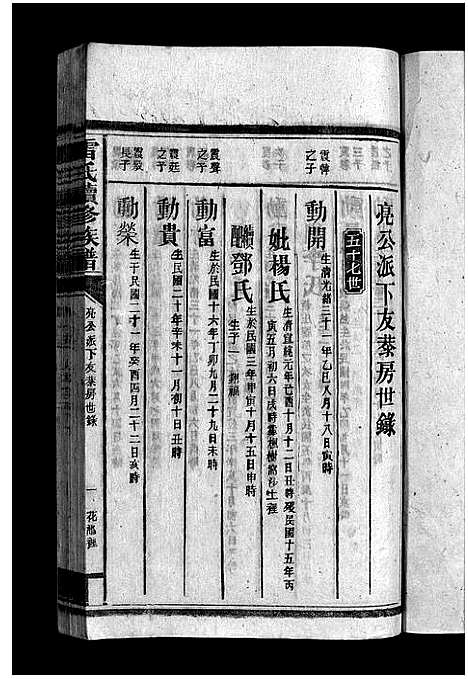 亮公派下友棻房世錄
五十七世
霞舜之子
動開
生清光緒三十一年乙巳八月十八日寅時
妣楊氏
生清宣統元年己酉十月十二日丑時歿民國十五年丙
寅五月初六日戌時葬樹
鄧氏
生於民國三年甲寅十月十五日申時
生子二
霞聲之子
動富
生於民國十六年丁卯九月二十九日未時
霞廷之子
動貴
生民國二十年辛未十一月初十日丑時
霞毅長子
動榮
生于民國二十一年癸酉四月二十二日亥時
雷氏續修族譜
亮公派下友棻房世錄
一
花橋裡